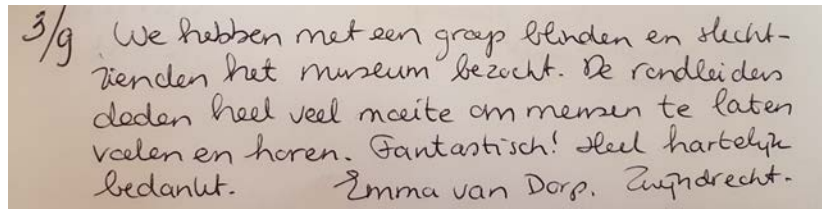 3/9 We hebben met een groep blinden en slecht-
zienden het museum bezocht. De rondleiders
deden heel veel moeite om mensen te laten
voelen en horen. Fantastisch! Heel hartelijk
bedankt. Emma van Dorp. Zwijndrecht.